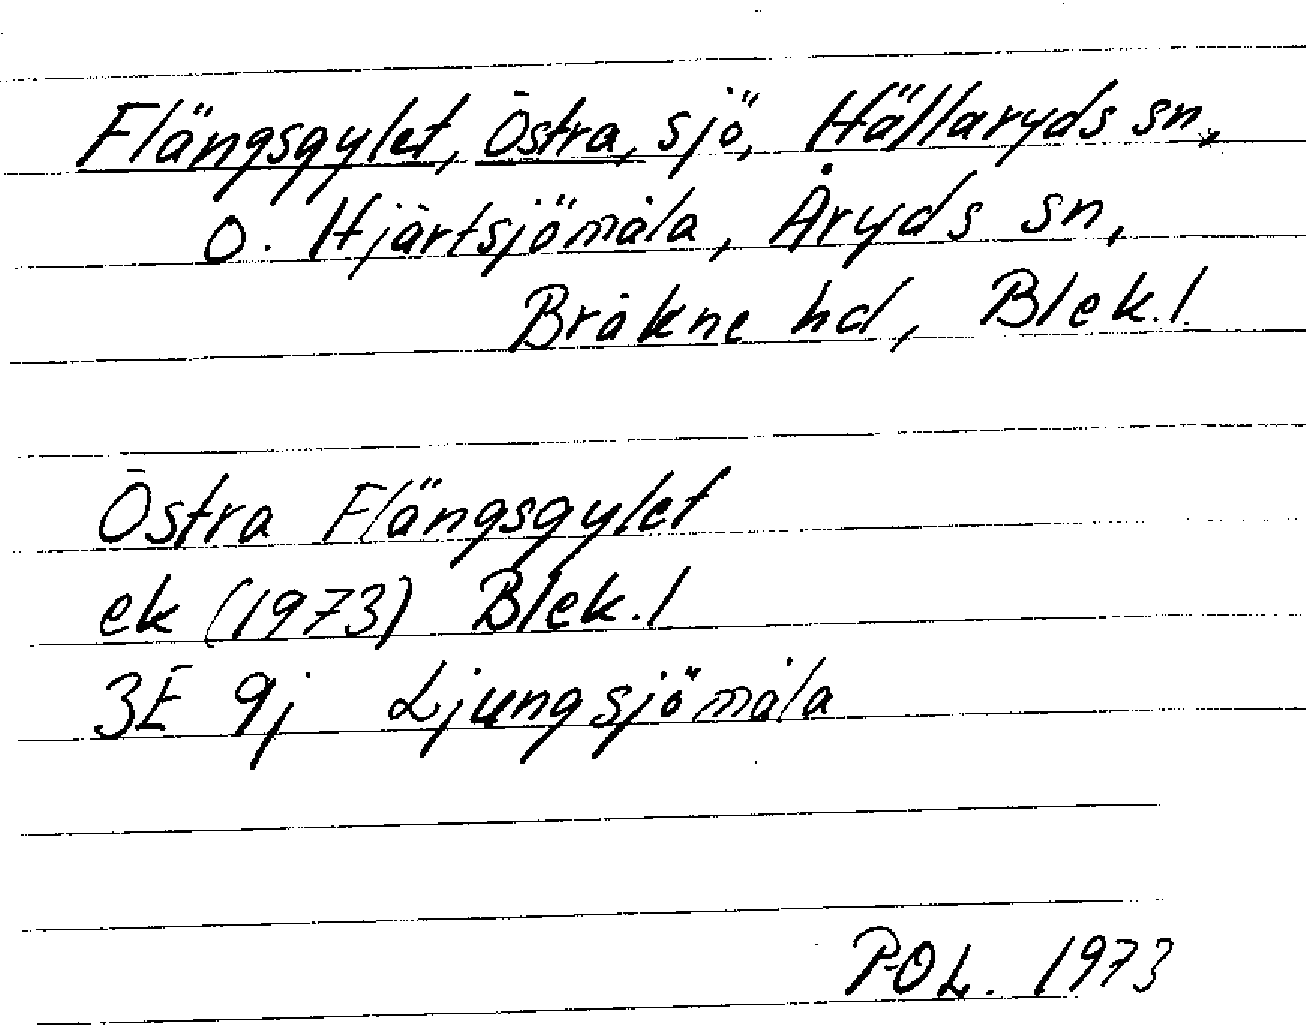 Flängsgylet, Östra, sjö, Hällaryds sn,
o. Hjärtsjömåla, Åryds sn,
Bräkne hd, Blek.l.
Östra Flängsgylet
ek (1973) Blek.l
3E 9j Ljungsjömåla
P-OL. 1973